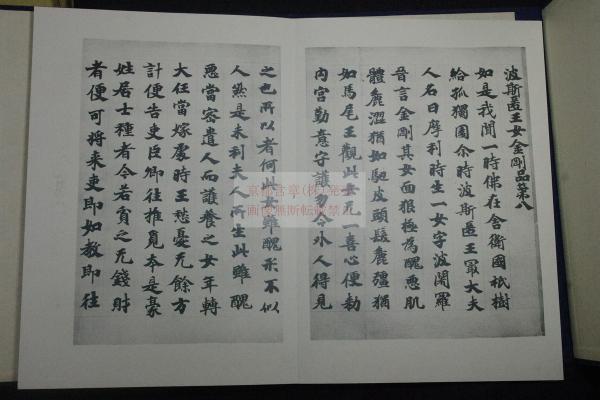 波斯匿王女金剛品第八
如是我聞一時佛在舎衛國祇樹
給孤獨園尒時波斯匿王冣大夫
人名曰摩利時生一女字波闍羅
晉言金剛其女面狠極為醜惡肌
體麁澀猶如駞皮頭髮麁彊猶
如馬尾王觀此女无一喜心便勑
内宮勤意守護勿令外人得見
之也所以者何此女雖醜形不似
人然是末利夫人所生此雖醜
惡當容遣人而護養之女年轉
大任當嫁處時王愁憂无餘方
計便告吏臣卿往推覓本是豪
姓居士種者今若貧乏无錢財
者便可将来吏即如教即往
京都古章(株)発行
画像無断転載禁止